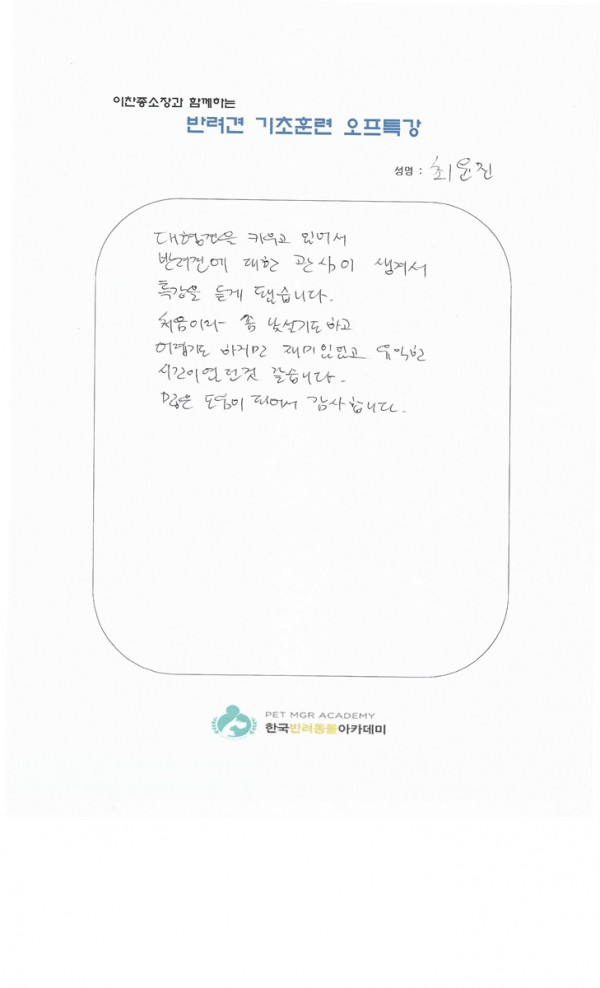 이찬종소장과 함께하는
반려견 기초훈련 오프특강
성명 : 최윤진
대형견을 키우고 있어서
반려견에 대한 관심이 생겨서
특강을 듣게 됐습니다.
처음이라 좀 낯설기도 하고
어렵기도 하지만 재미있었고 유익한
시간이였던것 같습니다.
많은 도움이 되어서 감사합니다.
PET MGR ACADEMY
한국반려동물아카데미